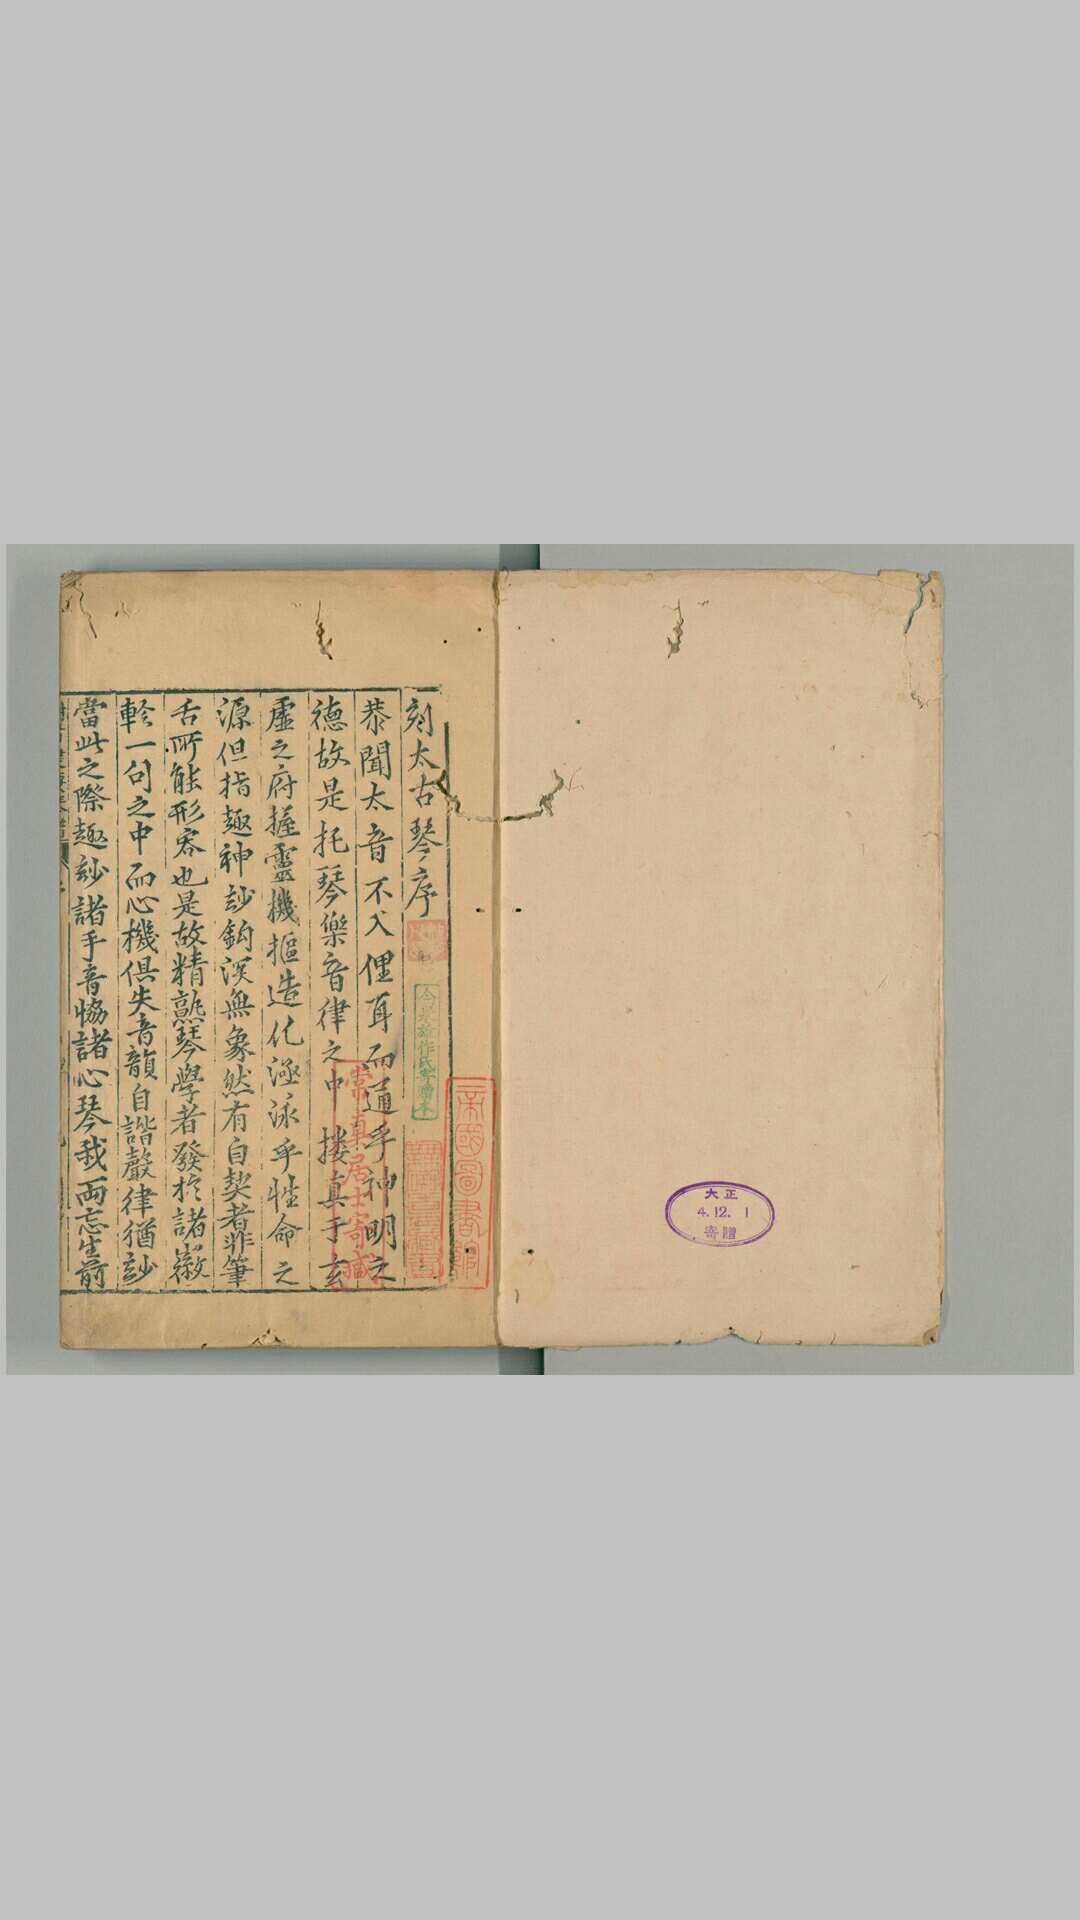 大正
4.12.1
寄贈
帝國圖書館
刻太古琴序
今泉雄作氏寄贈本
恭聞太音不入俚耳而通乎神明之
德故是托琴樂音律之中摟真于玄
常真居士寄藏
虛之府握靈機摳造化遊泳乎性命之
源但指趣神玅鈎深無象然有自契者非筆
舌所能形容也是故精熟琴學者發於諸徽
軫一句之中而心機俱失音韻自諧聲律猶玅
當此之際趣玅諸手音恊諸心琴我両忘生前